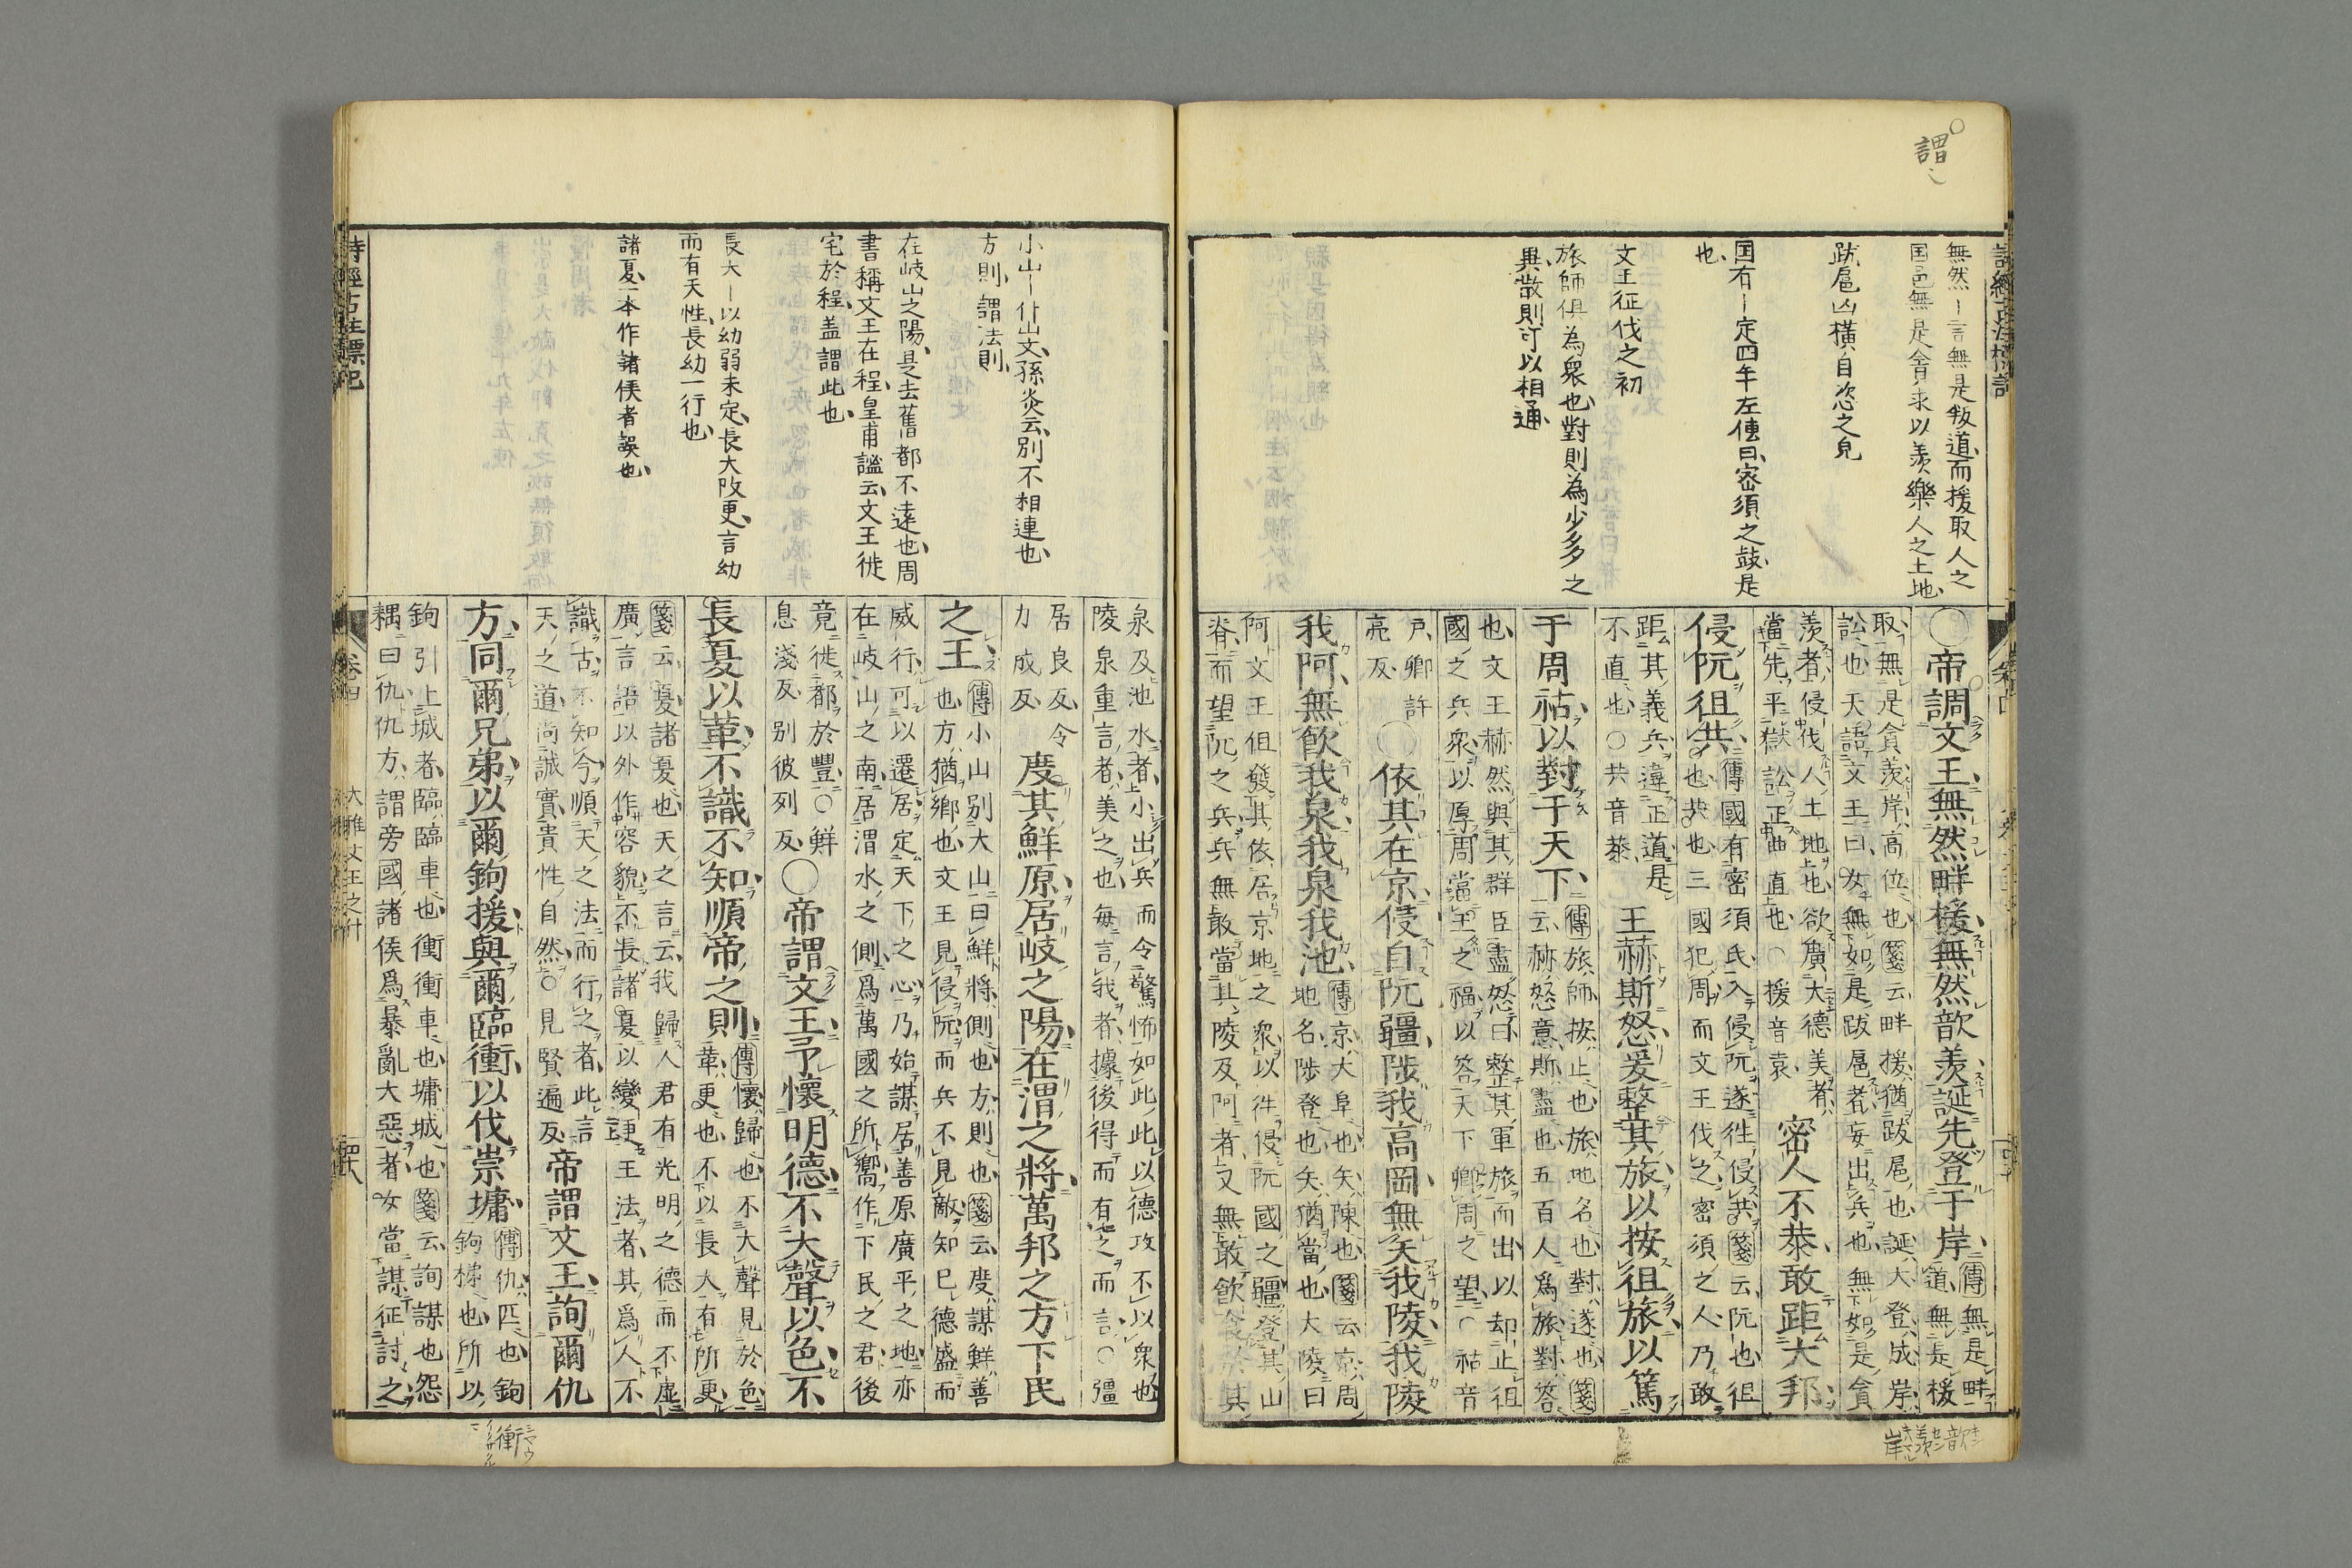 謂
無然ー言無是叛道而援取人之
国邑無是貪求以羨樂人之土地
跋扈凶橫自恣之皃
国有ー定四年左傳曰密須之鼓是
也
文王征伐之初
旅師俱為衆也對則為少多之
異散則可以相通
○帝調文王無然畔援無然歆羨誕先登于岸
傳無是畔
道無是援
取無是貪羨岸高位也箋云畔援猶跋扈也誕大登成岸
訟也天語文王曰女無如是跋扈者妄出兵也無如是貪
羨者侵伐人土地也欲廣大德美者
當先平獄訟正曲直也○援音袁
密人不恭敢距大邦
侵阮徂共
傳國有密須氏入侵阮遂徃侵共箋云阮也徂
也共也三國犯周而文王伐之密須之人乃敢
距其義兵違正道是
不直也○共音恭
王赫斯怒爰整其旅以按徂旅以篤
于周祜以對于天下
傳旅師按止也旅地名也對遂也箋
云赫怒意斯盡也五百人爲旅對荅
也文王赫然與其群臣盡怒曰整其軍旅而出以却止徂
國之兵衆以厚周當王之福以答天下鄉周之望○祜音
戶鄉許
亮反
○依其在京侵自阮疆陟我高岡無矢我陵我陵
我阿無飲我泉我泉我池
傳京大阜也矢陳也箋云京周
地名陟登也矢猶當也大陵曰
阿文王但發其依居京地之衆以徃侵阮國之疆登其山
脊而望阮之兵兵無敢當其陵及阿者又無敢飲食於其
小山ー仆山文孫炎云別不相連也
方則謂法則
在岐山之陽是去舊都不遠也周
書稱文王在程皇甫謐云文王徙
宅於程盖謂此也
長大ー以幼弱未定長大改更言幼
而有天性長幼一行也
諸夏一本作諸侯者誤也
泉及池水者小出兵而令驚怖如此此以德攻不以衆也
陵泉重言者美之也每言我者據後得而有之而言○疆
居良反令
力成反
度其鮮原居岐之陽在渭之將萬邦之方下民
之王
傳小山別大山曰鮮將側也方則也箋云度謀鮮善
也方猶鄉也文王見侵阮而兵不見敵知已德盛而
威行可以遷居定天下之心乃始謀居善原廣平之地亦
在岐山之南居渭水之側爲萬國之所嚮作下民之君後
竟徙都於豐○鮮
息淺反別彼列反
○帝謂文王予懷明德不大聲以色不
長夏以革不識不知順帝之則
傳懷歸也不大聲見於色
革更也不以長大有所更
箋云夏諸夏也天之言云我歸人君有光明之德而不虛
廣言語以外作容貌不長諸夏以變更王法者其爲人不
識古不知今順天之法而行之者此言
天之道尚誠實貴性自然○見賢遍反
帝謂文王詢爾仇
方同爾兄弟以爾鉤援與爾臨衝以伐崇墉
傳仇匹也鉤
鉤梯也所以
鉤引上城者臨臨車也衝衝車也墉城也箋云詢謀也怨
耦曰仇仇方謂旁國諸侯爲暴亂大惡者女當謀征討之
卷四
大雅文王之什
衝